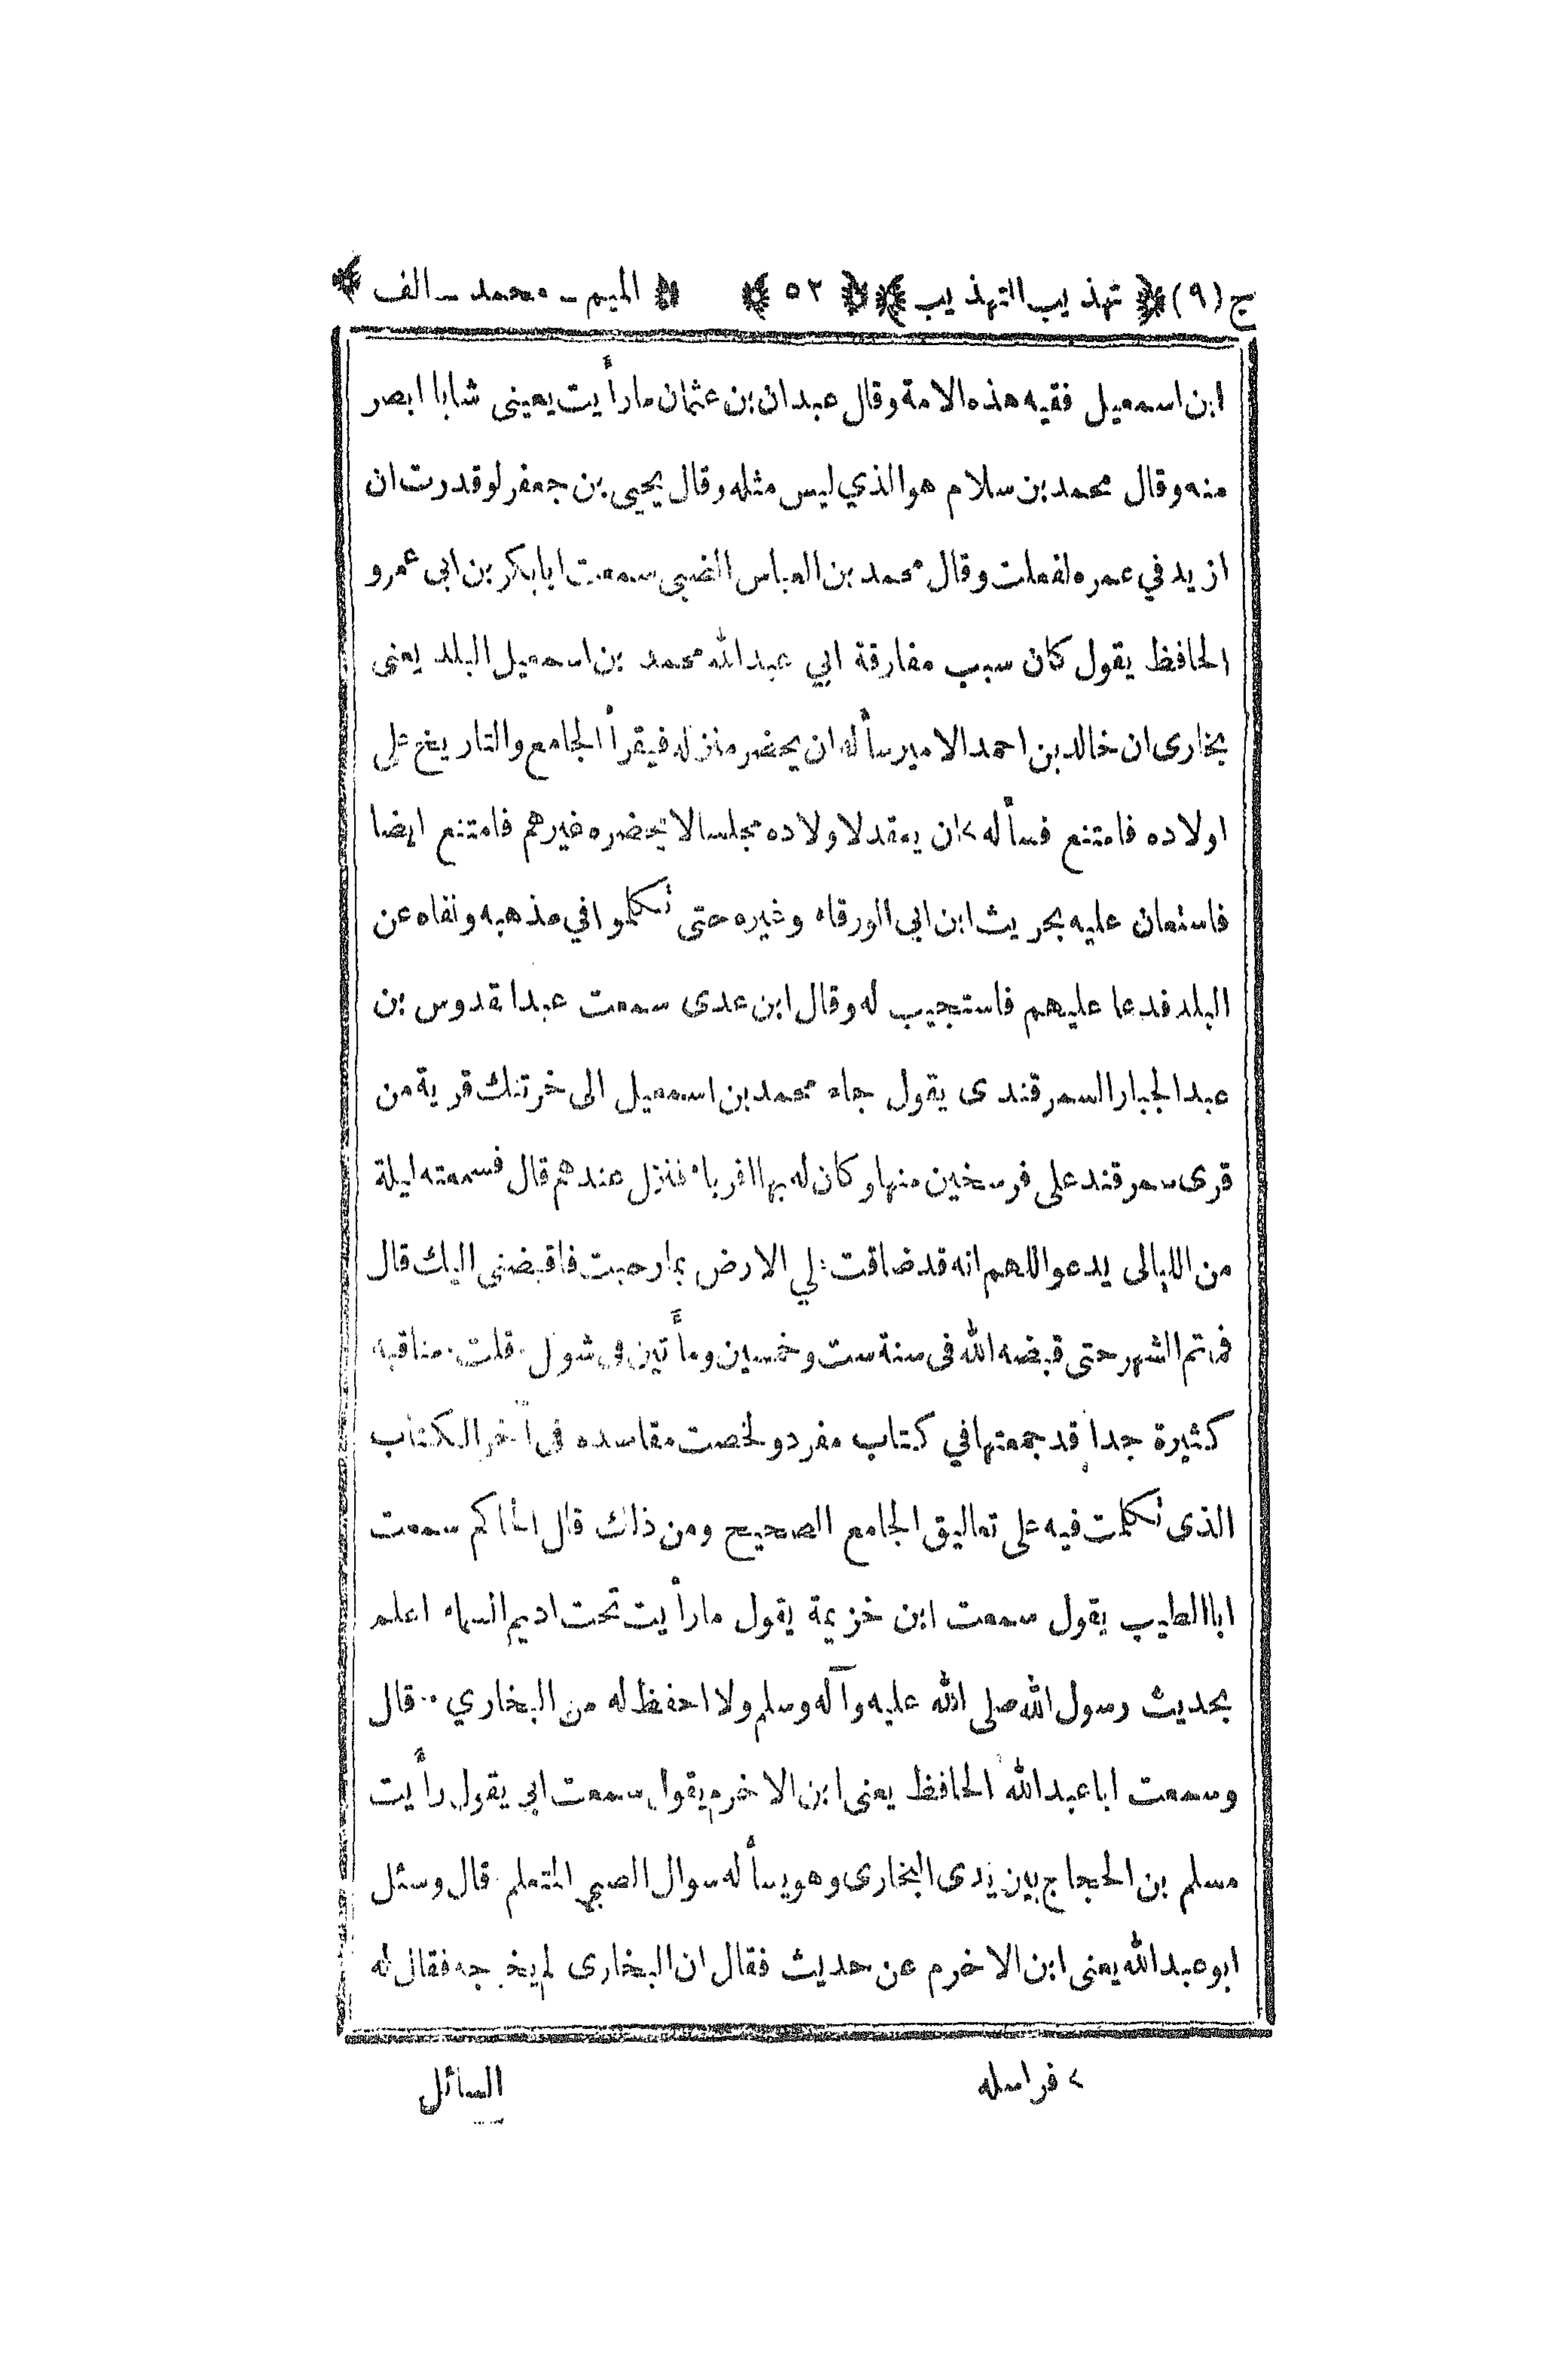 ج (٩) ﴿ تهذيب التهذيب ﴾ ﴿ ٥٢ ﴾ ﴿ الميم - محمد - الف ﴾
ابن اسمعيل فقيه هذه الامة وقال عبدان بن عثمان ما رأيت بعيني شابا ابصر
منه وقال محمد بن سلام هو الذي ليس مثله وقال يحيى بن جعفر لو قدرت ان
ازيد في عمره لفعلت وقال محمد بن العباس الضبى سمعت ابا بكر بن ابى عمرو
الحافظ يقول كان سبب مفارقة ابي عبد الله محمد بن اسمعيل البلد يعنى
بخارى ان خالد بن احمد الامير سأله ان يحضر منزله فيقرأ الجامع والتاريخ على
اولاده فامتنع فسأله > ان يعقد لاولاده مجلسا لا يحضره غيرهم فامتنع ايضا
فاستعان عليه بحريث ابن ابى الورقاء وغيره حتى تكلموا في مذهبه ونفاه عن
البلد فدعا عليهم فاستجيب له وقال ابن عدى سمعت عبد القدوس بن
عبد الجبار السمرقندى يقول جاء محمد بن اسمعيل الى خرتنك قرية من
قرى سمرقند على فرسخين منها وكان له بها اقرباء فنزل عندهم قال فسمعته ليلة
من الليالى يدعو اللهم انه قد ضاقت علي الارض بما رحبت فاقبضنى اليك قال
فما تم الشهر حتى قبضه الله فى سنة ست وخمسين ومأتين فى شوال · قلت · مناقبه
كثيرة جدا قد جمعتها في كتاب مفرد ولخصت مقاصده فى آخر الكتاب
الذى تكلمت فيه على تعاليق الجامع الصحيح ومن ذلك قال الحاكم سمعت
ابا الطيب يقول سمعت ابن خزيمة يقول ما رأيت تحت اديم السماء اعلم
بحديث رسول الله صلى الله عليه وآله وسلم ولا احفظ له من البخاري ·· قال
وسمعت ابا عبد الله الحافظ يعنى ابن الاخرم يقول سمعت ابي يقول رأيت
مسلم بن الحجاج بين يدى البخارى وهو يسأله سوال الصبي المتعلم · قال وسئل
ابو عبد الله يعنى ابن الاخرم عن حديث فقال ان البخارى لم يخرجه فقال له
> فراسله
السائل